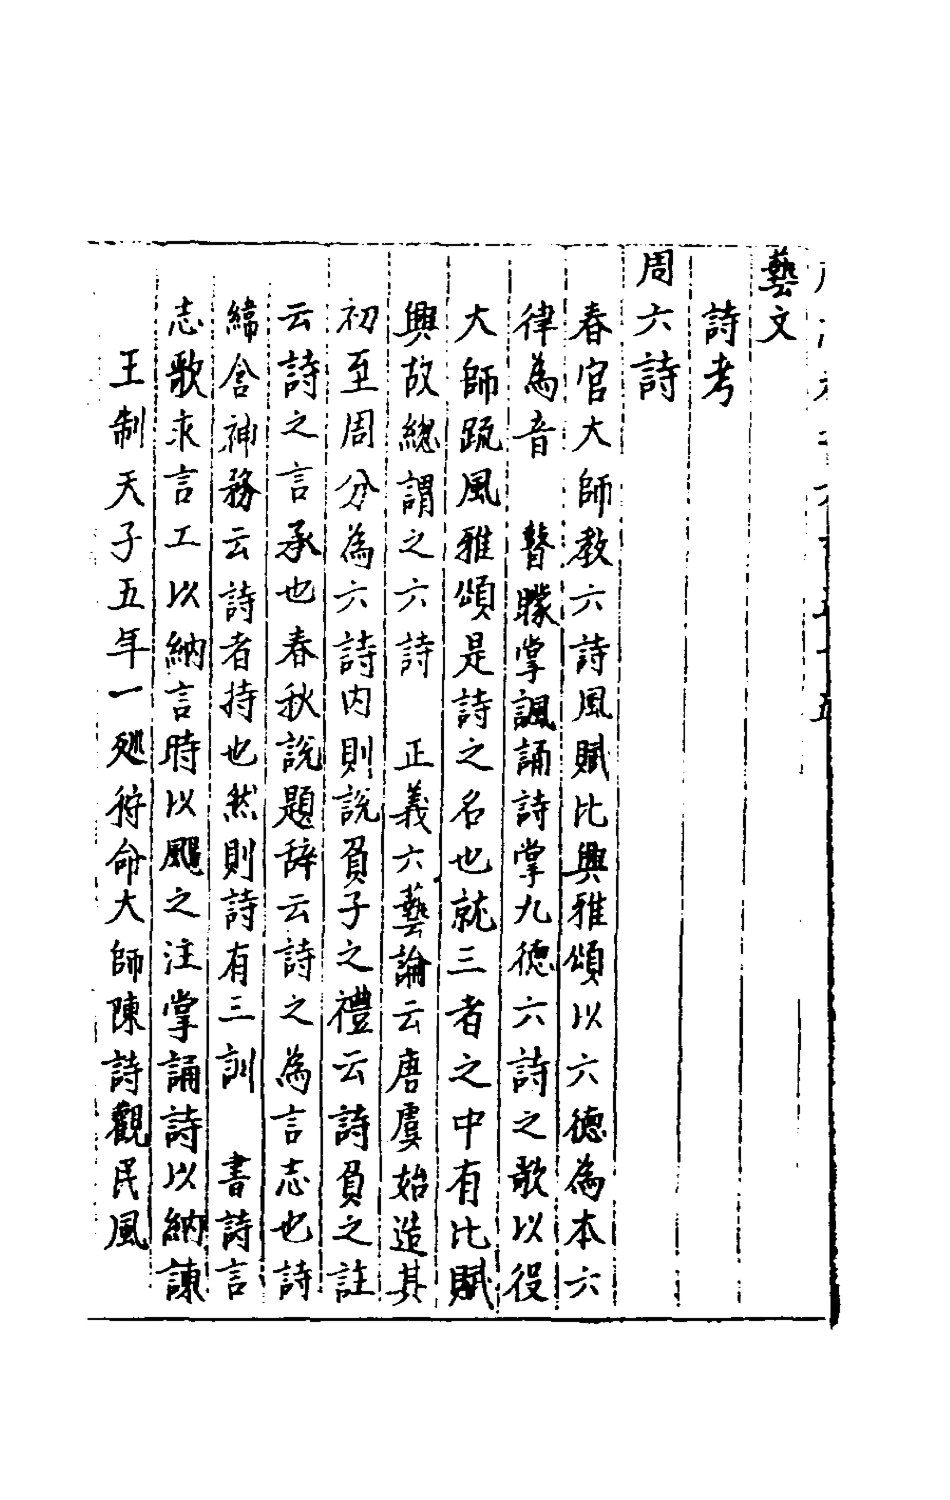 藝文
詩考
周六詩
春官大師教六詩風賦比興雅頌以六德為本六
律為音　瞽矇掌諷誦詩掌九德六詩之歌以役
大師疏風雅頌是詩之名也就三者之中有比賦
興故總謂之六詩　正義六藝論云唐虞始造其
初至周分為六詩內則說負子之禮云詩負之註
云詩之言承也春秋說題辞云詩之為言志也詩
緯含神務云詩者持也然則詩有三訓　書詩言
志歌永言工以納言時以颺之注掌誦詩以納諫
王制天子五年一廵狩命大師陳詩觀民風